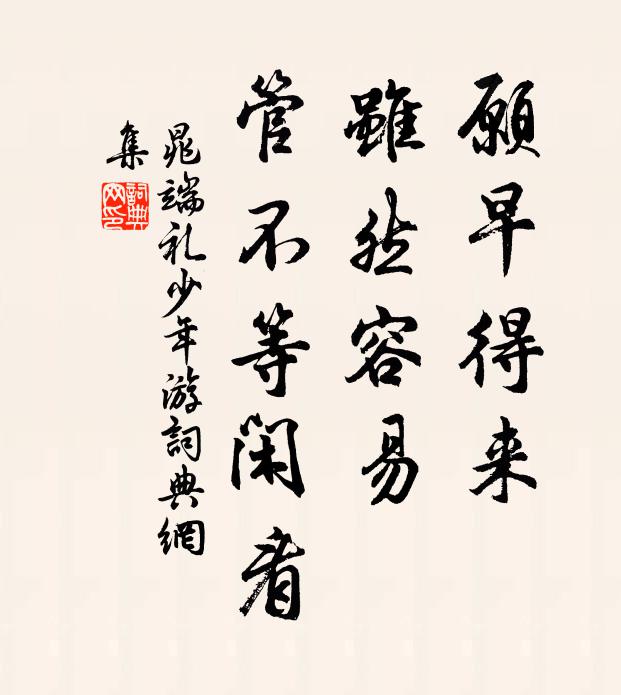 願早得来
雖然容易
管不等閑看
晁端礼少年游詞典網
集
詞典网印